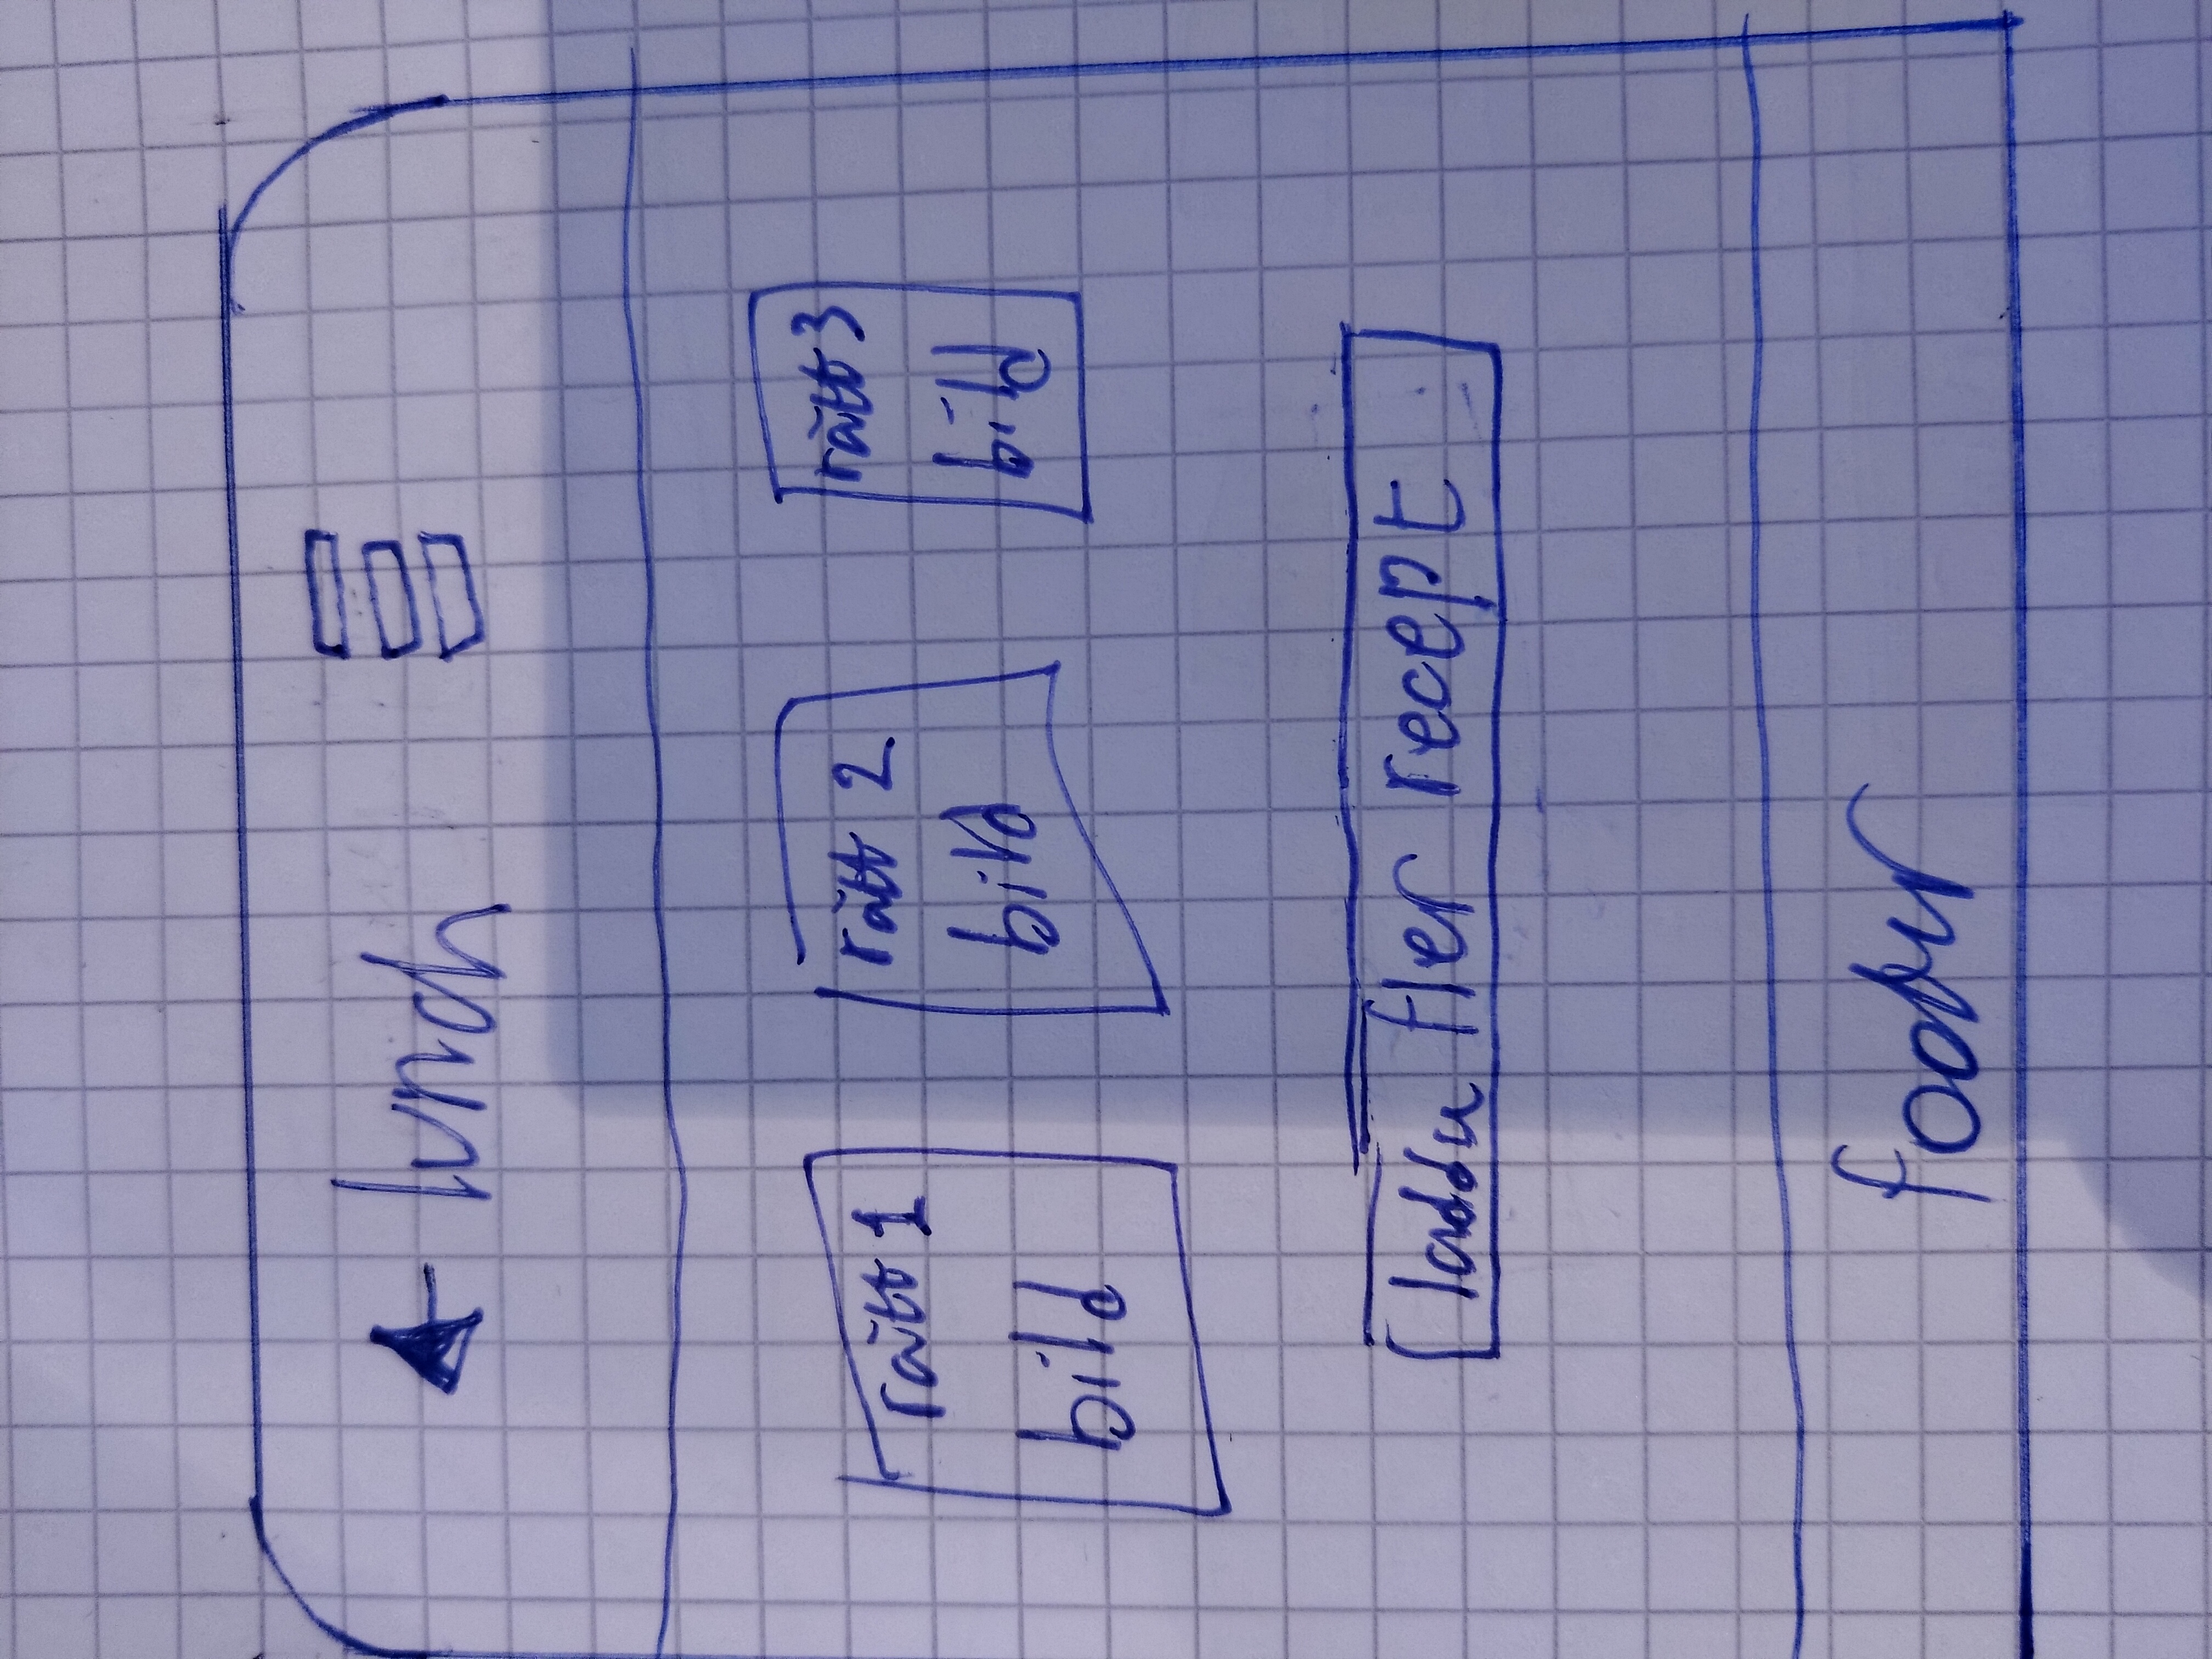 lunch
rätt 1
bild
rätt 2
bild
rätt 3
bild
ladda fler recept